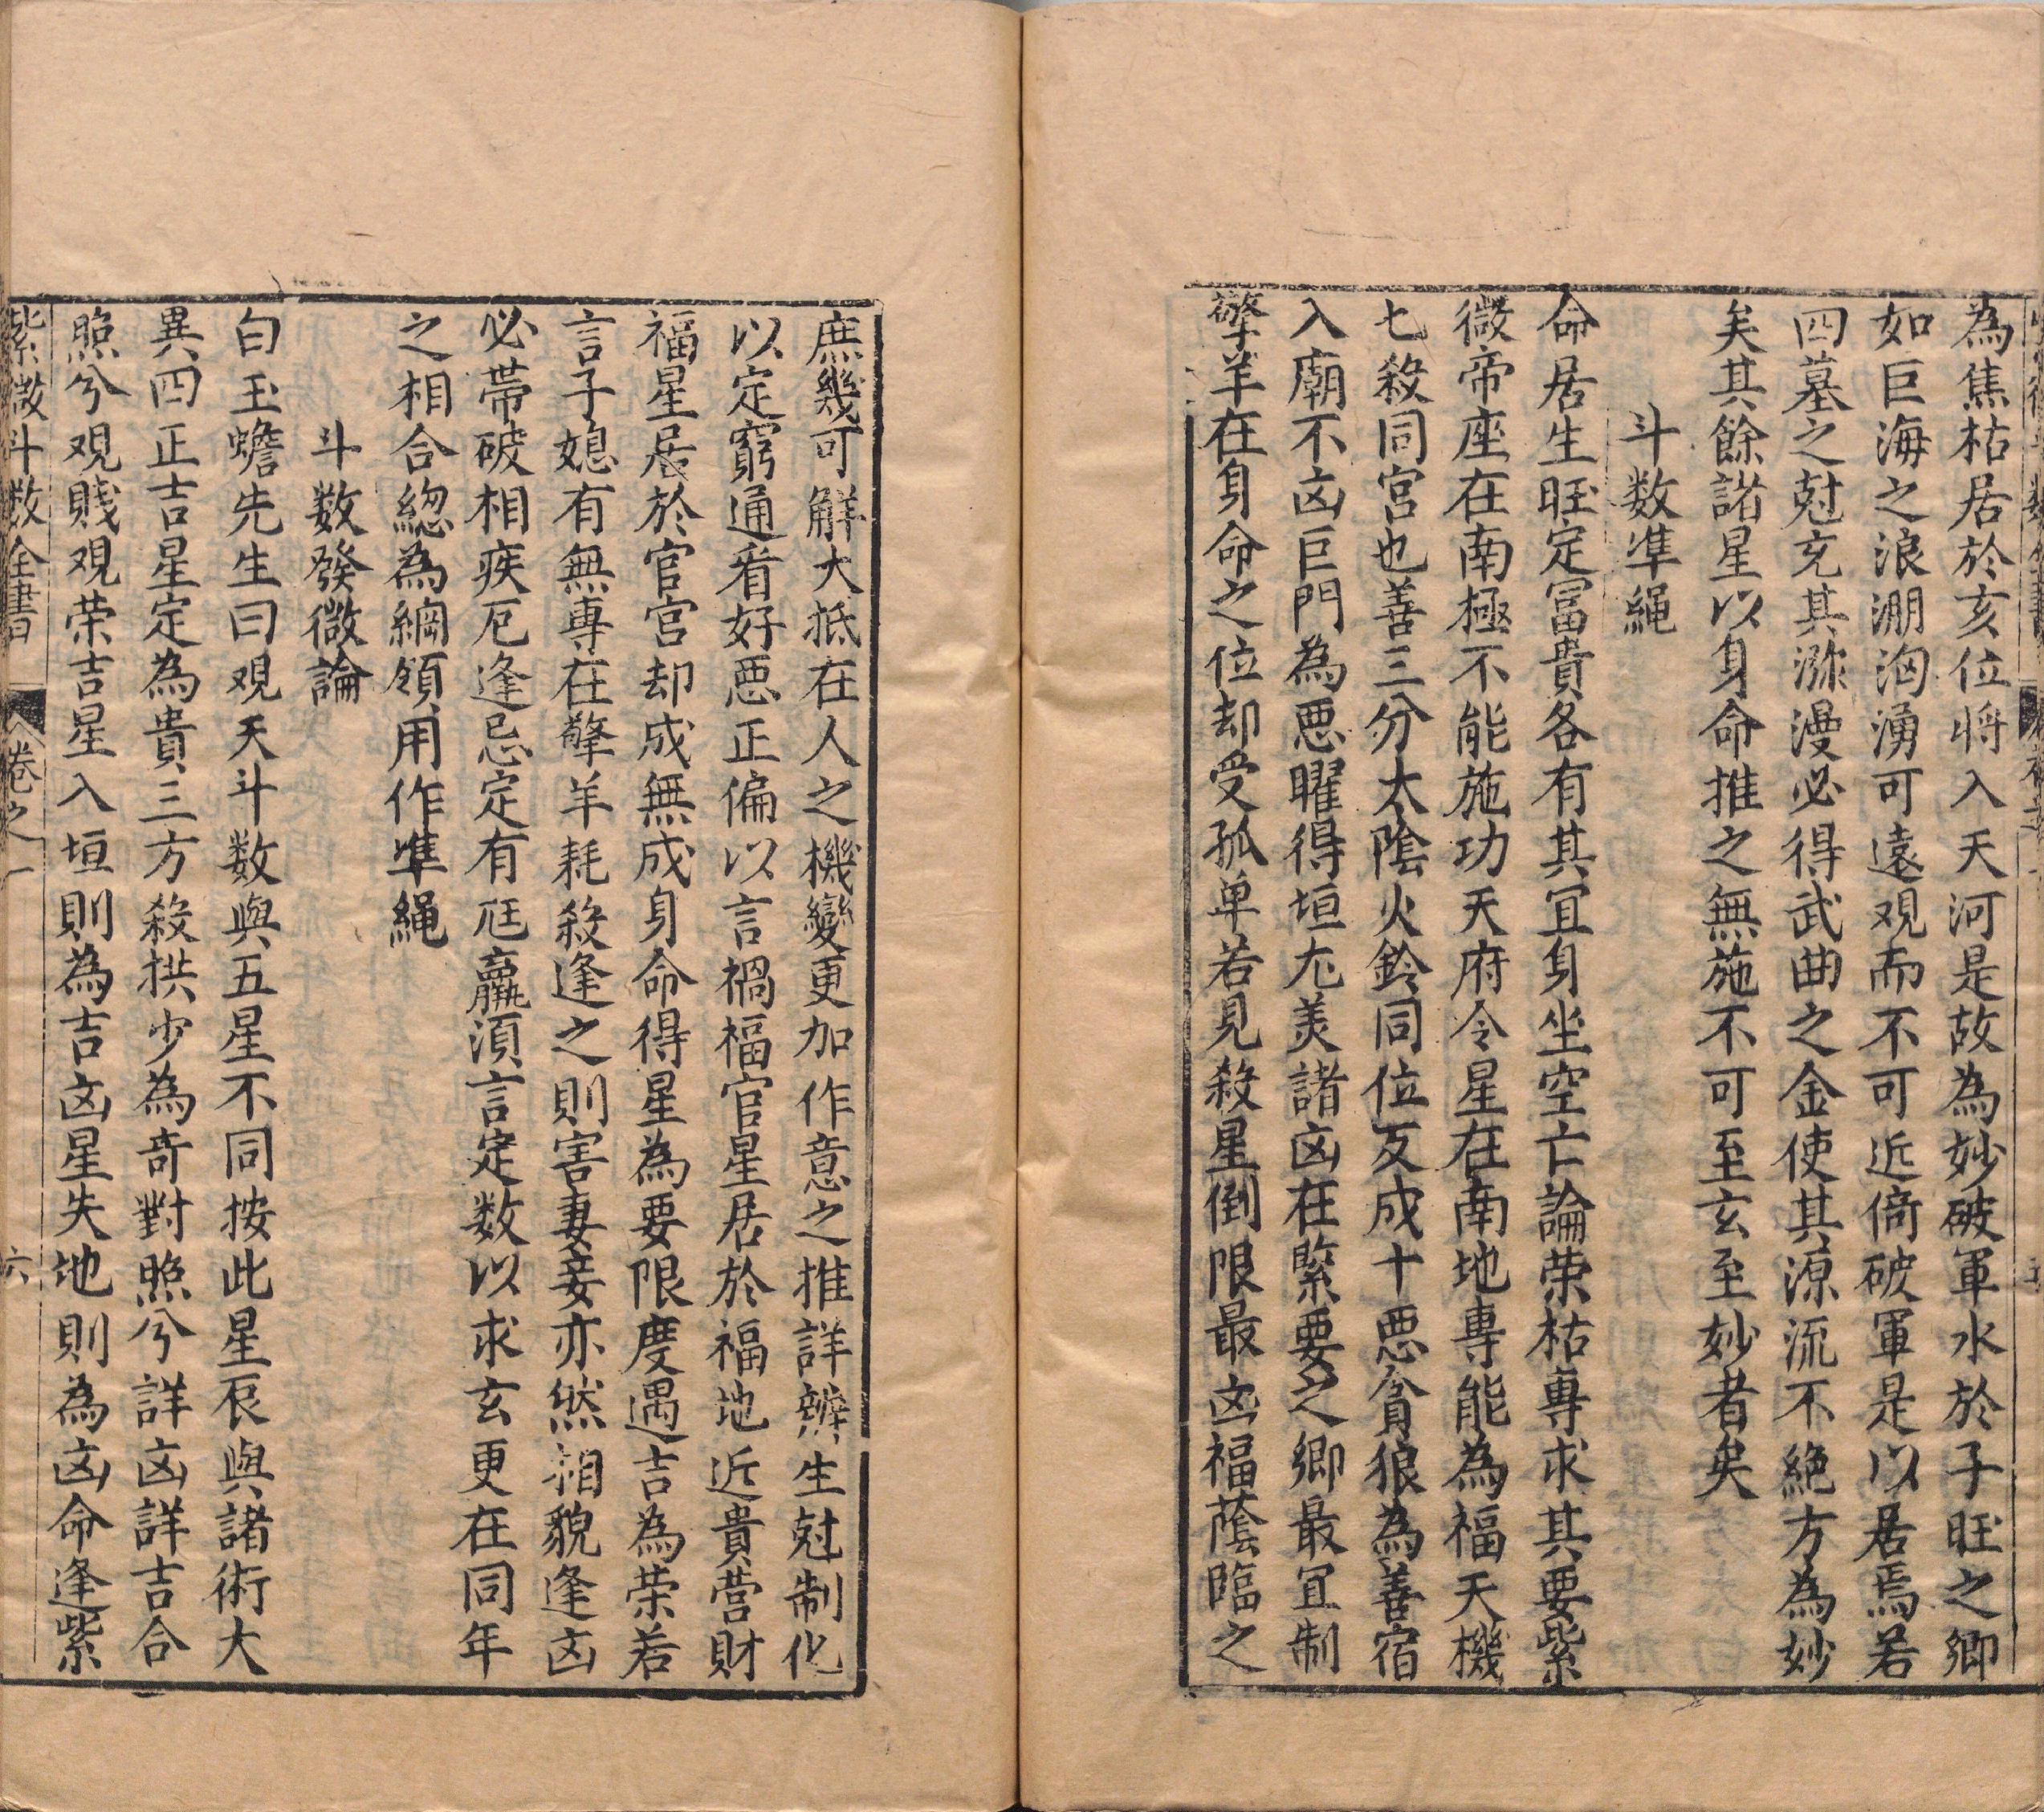 為焦枯居於亥位將入天河是故為妙破軍水於子旺之鄉
如巨海之浪淜洶湧可遠观而不可近倚破軍是以居焉若
四墓之尅充其㳽漫必得武曲之金使其源流不絶方為妙
矣其餘諸星以身命推之無施不可至玄至妙者矣
斗数凖䋲
命居生旺定冨貴各有其冝身坐空亡論荣枯專求其要紫
微帝座在南極不能施功天府令星在南地專能為福天機
七殺同宫也善三分太陰火鈴同位反成十悪貪狼為善宿
入廟不凶巨門為悪曜得垣尤羙諸凶在緊要之鄉最冝制
擎羊在身命之位却受孤单若見殺星倒限最凶福䕃臨之
庶幾可解大抵在人之機變更加作意之推詳辨生尅制化
以定窮通看好悪正偏以言禍福官星居於福地近貴营財
福星居於官宫却成無成身命得星為要限度遇吉為荣若
言子媳有無專在擎羊耗殺逢之則害妻妾亦然相貌逢凶
必帶破相疾厄逢忌定有尩羸須言定数以求玄更在同年
之相合緫為綱領用作凖䋲
斗数發微論
白玉蟾先生曰观天斗数與五星不同按此星辰與諸術大
異四正吉星定為貴三方殺拱少為奇對照兮詳凶詳吉合
照兮观賤观荣吉星入垣則為吉凶星失地則為凶命逢紫
紫微斗数全書 卷之一 六